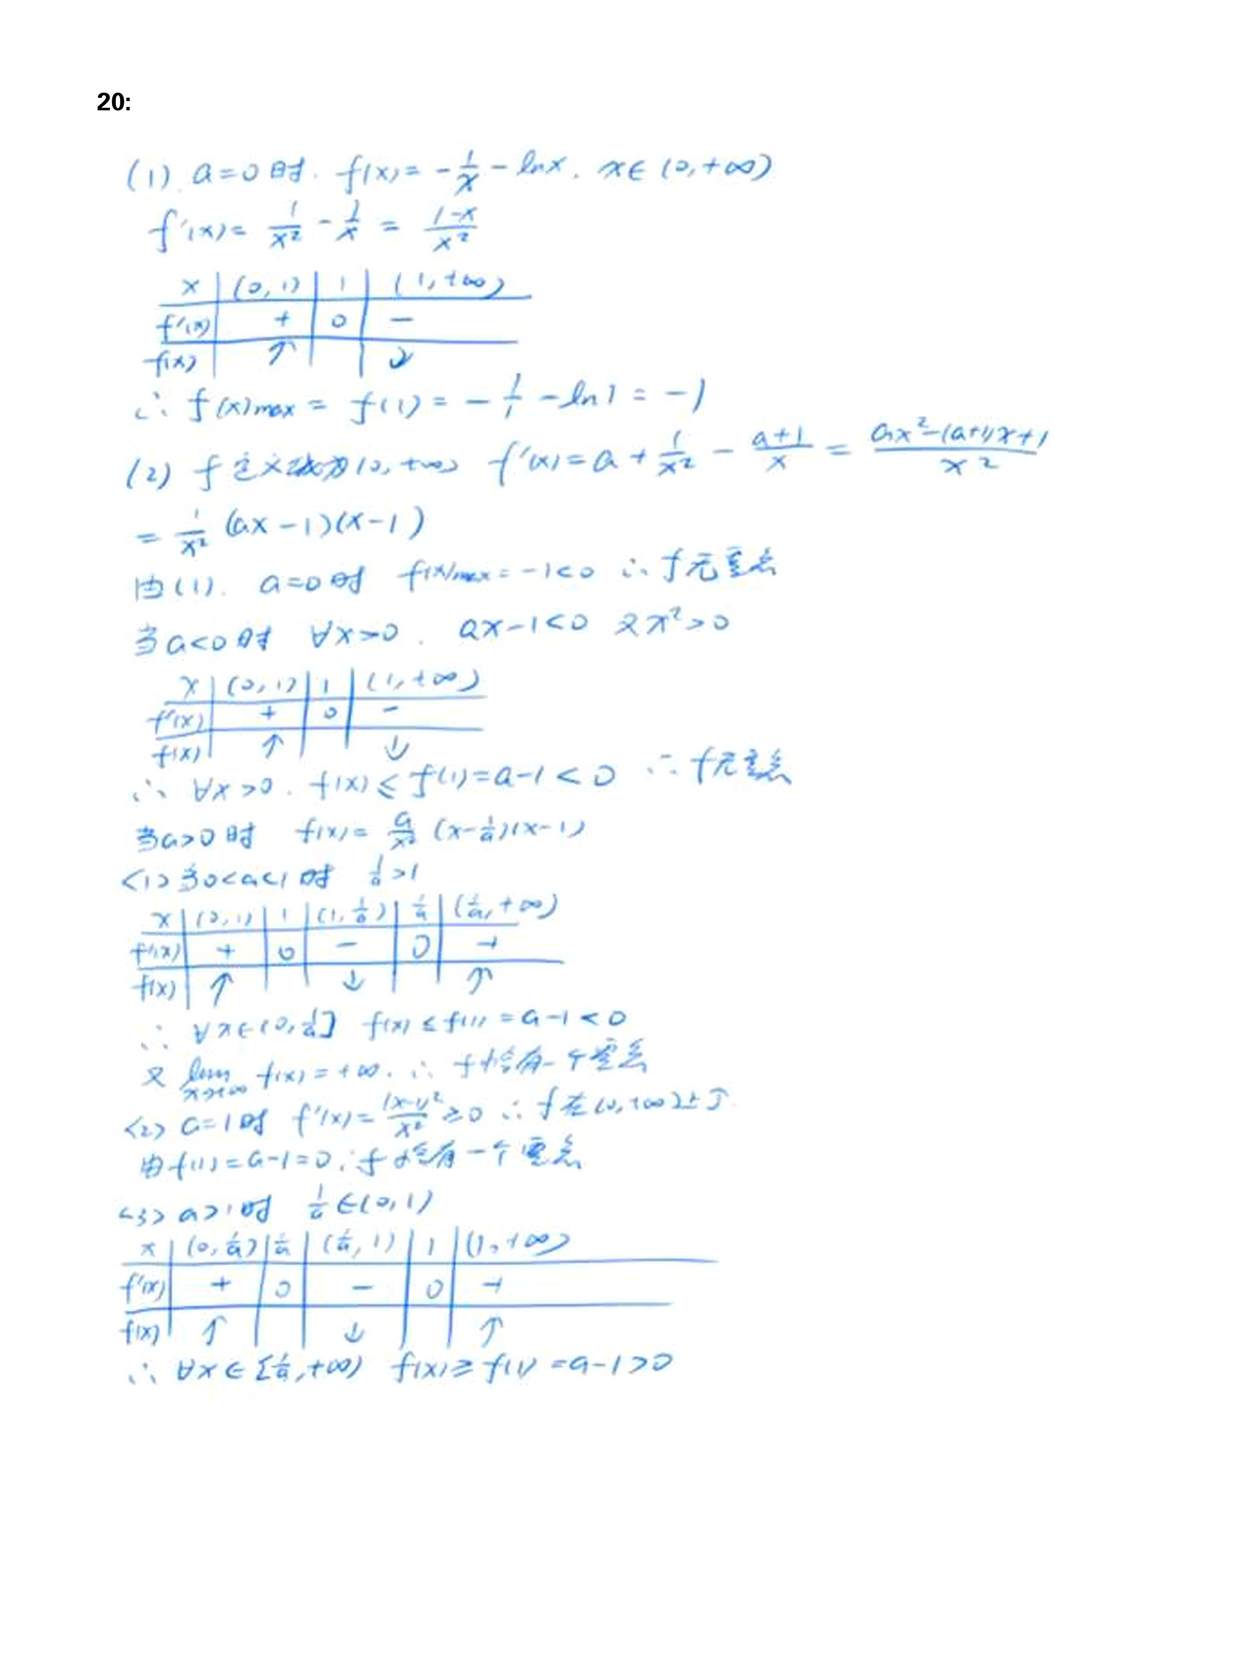 20:
(1). a=0时. f(x)= -1/x - lnx. x∈(0,+∞)
f'(x)= 1/x² - 1/x = (1-x)/x²
x | (0,1) | 1 | (1,+∞)
f'(x) | + | 0 | -
f(x) | ↑ | | ↓
∴ f(x)max = f(1) = -1/1 - ln1 = -1
(2) f定义域为(0,+∞) f'(x)=a+1/x² - (a+1)/x = (ax²-(a+1)x+1)/x²
= 1/x² (ax-1)(x-1)
由(1). a=0时 f(x)max=-1<0 ∴f无零点
当a<0时 ∀x>0. ax-1<0 又x²>0
x | (0,1) | 1 | (1,+∞)
f'(x) | + | 0 | -
f(x) | ↑ | | ↓
∴ ∀x>0. f(x)≤f(1)=a-1<0 ∴f无零点
当a>0时 f(x)= a/x² (x-1/a)(x-1)
<1>当0<a<1时 1/a>1
x | (0,1) | 1 | (1,1/a) | 1/a | (1/a,+∞)
f'(x) | + | 0 | - | 0 | +
f(x) | ↑ | | ↓ | | ↑
∴ ∀x∈(0,1/a] f(x)≤f(1)=a-1<0
又 lim x→+∞ f(x)=+∞. ∴ f恰有一个零点
<2> a=1时 f'(x)=(x-1)²/x²≥0 ∴f在(0,+∞)上↑
由f(1)=a-1=0.∴f恰有一个零点
<3> a>1时 1/a∈(0,1)
x | (0,1/a) | 1/a | (1/a,1) | 1 | (1,+∞)
f'(x) | + | 0 | - | 0 | +
f(x) | ↑ | | ↓ | | ↑
∴ ∀x∈[1/a,+∞) f(x)≥f(1)=a-1>0